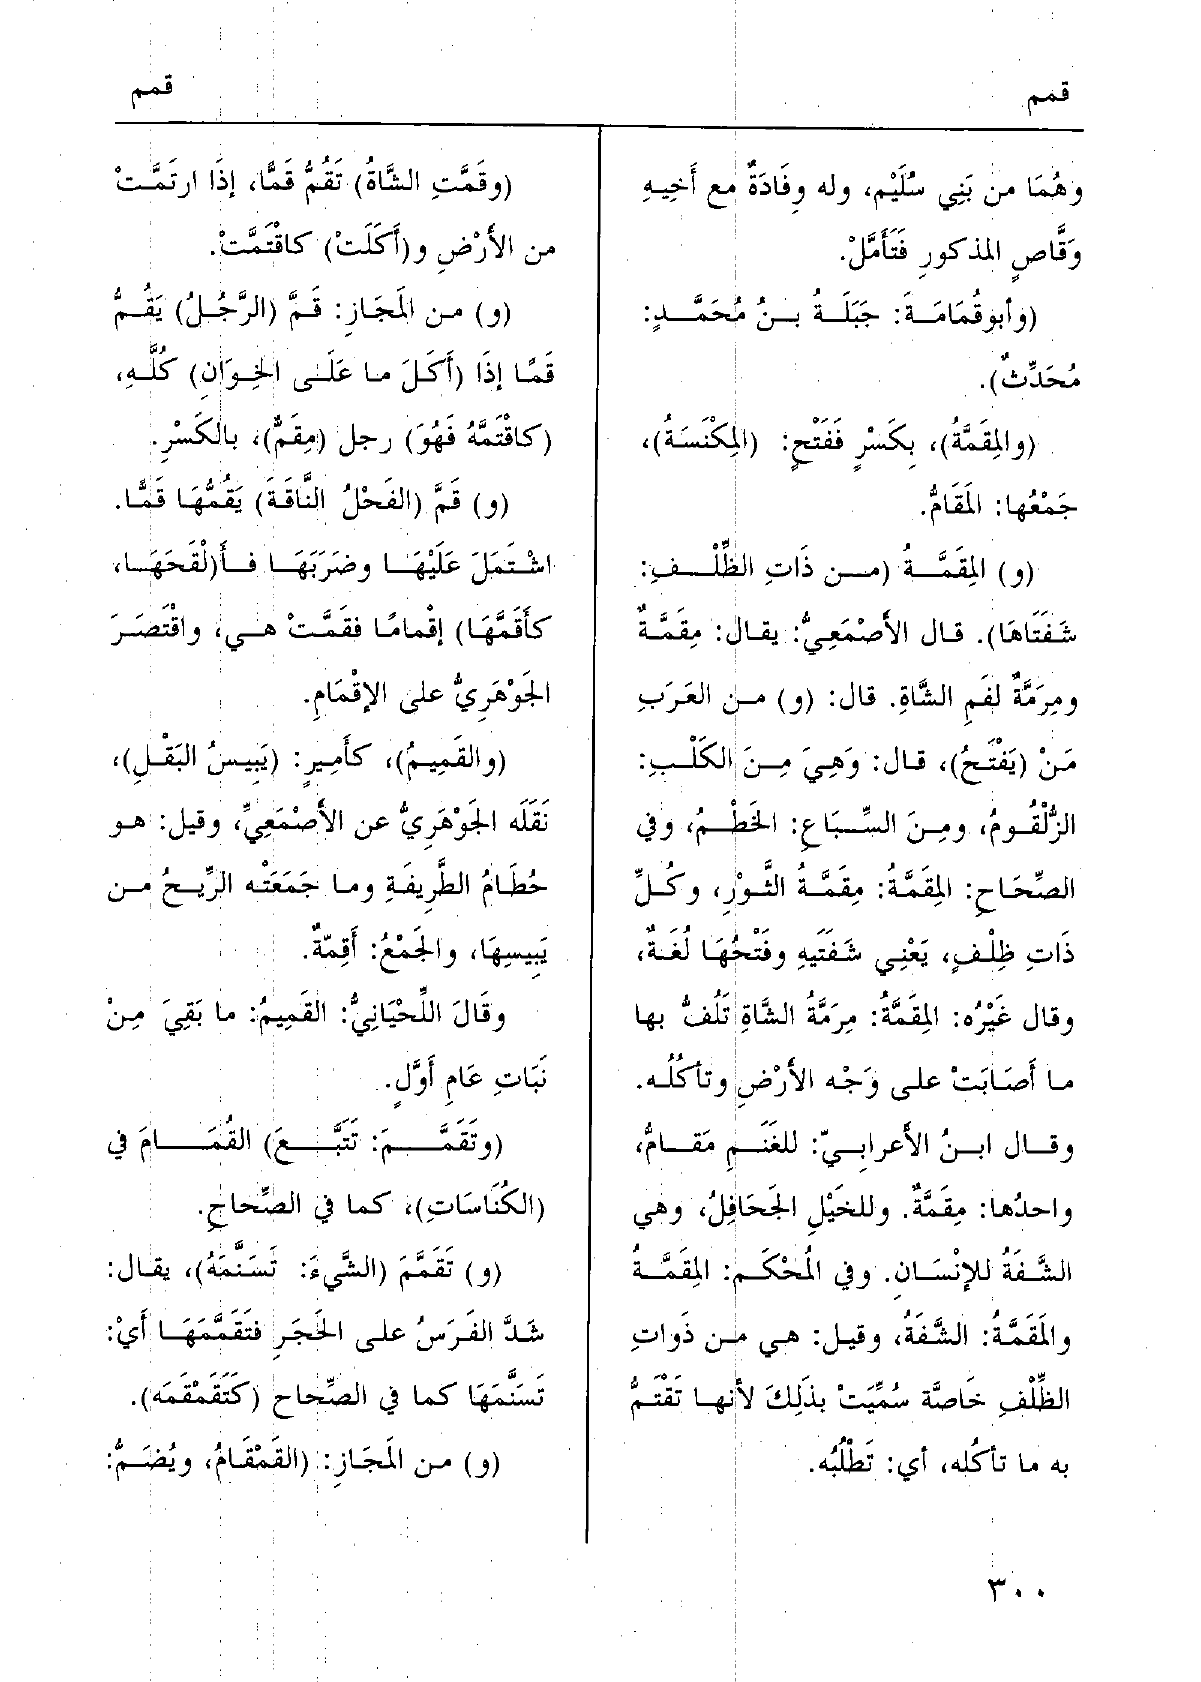 قمم
قمم
وهُمَا من بَنِي سُلَيْم، وله وِفَادَةٌ مع أَخِيهِ
وَقَّاصٍ المذكورِ فَتَأَمَّلْ.
(وأبوقُمَامَةَ: جَبَلَةُ بنُ مُحَمَّدٍ:
مُحَدِّثٌ).
(والمِقَمَّةُ)، بِكَسْرٍ فَفَتْحٍ: (المِكْنَسَةُ)،
جَمْعُها: المَقَامُّ.
(و) المِقَمَّةُ (من ذَاتِ الظِّلْفِ:
شَفَتَاهَا). قال الأَصْمَعِيُّ: يقال: مِقَمَّةٌ
ومِرَمَّةٌ لفَمِ الشَّاةِ. قال: (و) من العَرَبِ
مَنْ (يَفْتَحُ)، قال: وَهِيَ مِنَ الكَلْبِ:
الزُّلْقُومُ، ومِنَ السِّبَاعِ: الخَطْمُ، وفي
الصِّحَاحِ: المِقَمَّةُ: مِقَمَّةُ الثَّوْرِ، وكُلِّ
ذَاتِ ظِلْفٍ، يَعْنِي شَفَتَيهِ وفَتْحُهَا لُغَةٌ،
وقال غَيْرُه: المِقَمَّةُ: مِرَمَّةُ الشَّاةِ تَلُفُّ بها
ما أَصَابَتْ على وَجْه الأَرْضِ وتأكُلُه.
وقال ابنُ الأَعرابيّ: للغَنَمِ مَقَامُّ،
واحدُها: مِقَمَّةٌ. وللخَيْلِ الجَحَافِلُ، وهي
الشَّفَةُ للإنْسَانِ. وفي المُحْكَم: المِقَمَّةُ
والمَقَمَّةُ: الشَّفَةُ، وقيل: هي من ذَواتِ
الظِّلْفِ خَاصَّة سُمِّيَتْ بذَلِكَ لأنها تَقْتَمُّ
به ما تأكُله، أي: تَطْلُبُه.
(وقَمَّتِ الشَّاةُ) تَقُمُّ قَمًّا، إذَا ارتَمَّتْ
من الأَرْضِ و(أَكَلَتْ) كاقْتَمَّتْ.
(و) من المَجَازِ: قَمَّ (الرَّجُلُ) يَقُمُّ
قَمًّا إذَا (أَكَلَ ما عَلَى الخِوَانِ) كُلَّهِ،
(كاقْتَمَّهُ فَهُوَ) رجل (مِقَمٌّ)، بالكَسْرِ.
(و) قَمَّ (الفَحْلُ النَّاقَةَ) يَقُمُّهَا قَمًّا.
اشْتَمَلَ عَلَيْهَا وضَرَبَهَا فأَ(لْقَحَهَا،
كأَقَمَّهَا) إقْمامًا فقَمَّتْ هي، واقْتَصَرَ
الجَوْهَرِيُّ على الإقْمَامِ.
(والقَمِيمُ)، كأَمِيرٍ: (يَبِيسُ البَقْلِ)،
نَقَلَه الجَوْهَرِيُّ عن الأَصْمَعِيِّ، وقيل: هو
حُطَامُ الطَّرِيفَةِ وما جَمَعَتْه الرِّيحُ من
يَبِيسِهَا، والجَمْعُ: أَقِمّةٌ.
وقَالَ اللِّحْيَانِيُّ: القَمِيمُ: ما بَقِيَ مِنْ
نَبَاتِ عَامِ أَوَّلٍ.
(وتَقَمَّمَ: تَتَبَّعَ) القُمَامَ في
(الكُنَاسَاتِ)، كما في الصِّحاحِ.
(و) تَقَمَّمَ (الشَّيءَ: تَسَنَّمَهُ)، يقال:
شَدَّ الفَرَسُ على الحَجَرِ فتَقَمَّمَهَا أَيْ:
تَسَنَّمَهَا كما في الصِّحاح (كَتَقَمْقَمَه).
(و) من المَجَازِ: (القَمْقَامُ، ويُضَمُّ:
٣٠٠